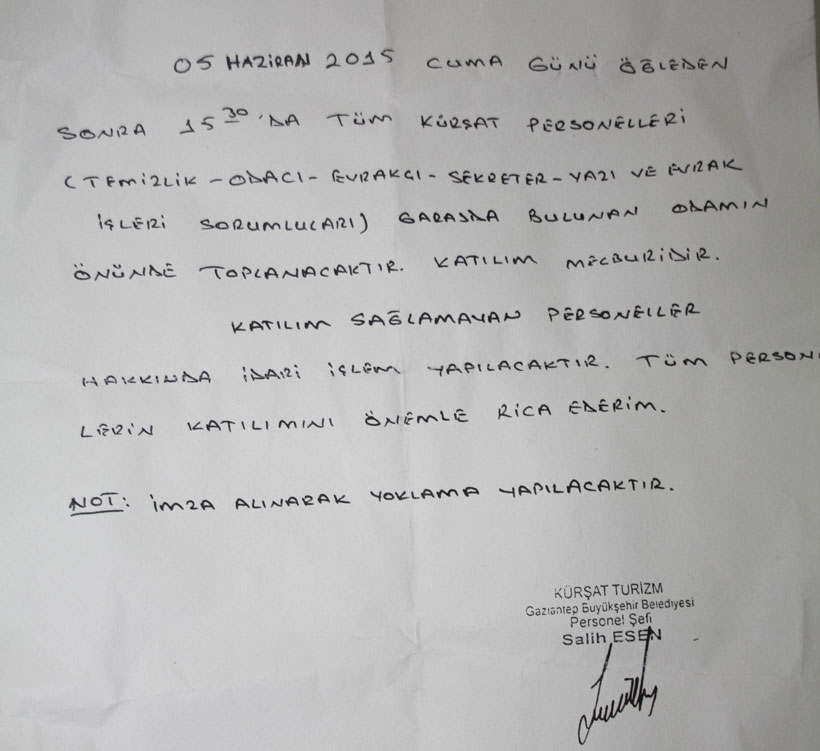 05 HAZİRAN 2015 CUMA GÜNÜ ÖĞLEDEN
SONRA 15 30 'DA TÜM KÜRŞAT PERSONELLERİ
( TEMİZLİK - ODACI - EVRAKÇI - SEKRETER - YAZI VE EVRAK
İŞLERİ SORUMLULARI) GARAJDA BULUNAN ODAMIN
ÖNÜNDE TOPLANACAKTIR. KATILIM MECBURİDİR.
KATILIM SAĞLAMAYAN PERSONELLER
HAKKINDA İDARİ İŞLEM YAPILACAKTIR. TÜM PERSON
LERİN KATILIMINI ÖNEMLE RİCA EDERİM.
NOT: İMZA ALINARAK YOKLAMA YAPILACAKTIR.
KÜRŞAT TURİZM
Gaziantep Büyükşehir Belediyesi
Personel Şefi
Salih ESEN